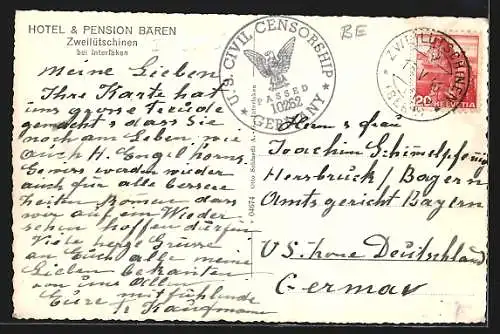 HOTEL & PENSION BÄREN
Zweilütschinen
bei Interlaken
Meine Lieben
Ihre Karte hat
uns grosse Freude
gemacht dass Sie
noch am Leben wie
auch H. Engelhorns.
Gewiss werden wieder
auch für alle bessere
Zeiten kommen dass
wir auf ein Wieder
sehen hoffen dürfen
Viele herzl Grüsse
an Euch alle meine
Lieben bekannten
von uns Allen
Eure mitfühlende
Kaufmann
U.S. CIVIL CENSORSHIP
PASSED
10262
GERMANY
BE
ZWEILÜTSCHINEN
20 HELVETIA
04674
Herr & Frau
Joachim Schimelpfenig
Hersbruck / Bayern
Amtsgericht Bayern
US. zone Deutschland
Germany